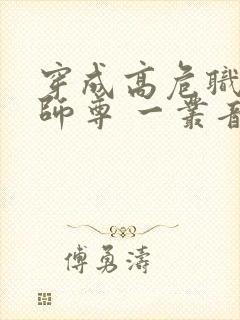 穿成高危職
師尊 一叢音
傅勇濤